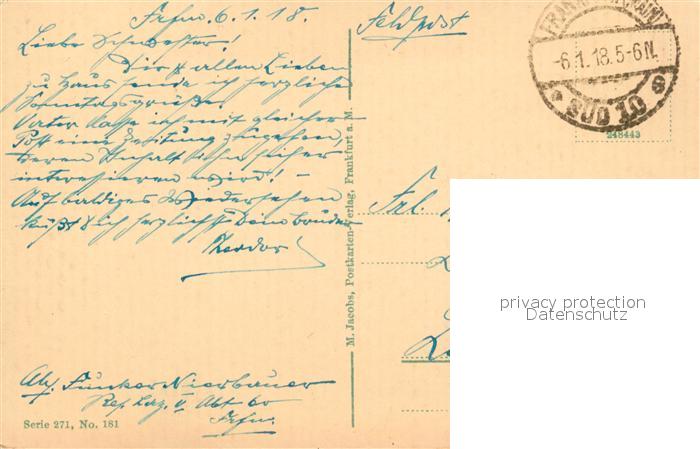 Frfm. 6.1.18.
Liebe Schwester!
Dir & allen Lieben
zu Haus sende ich herzliche
Sonntagsgrüße.
Vater lasse ich mit gleicher
Post eine Zeitung zugehen,
deren Inhalt ihn sicher
interessieren wird! -
Auf baldiges Wiedersehen
küßt Dich herzlichst Dein Bruder
Theodor
Abs. Funker Nierbauer
Res. Laz. V Abt 60
Frfm.
Serie 271, No. 181
M. Jacobs, Postkarten-Verlag, Frankfurt a. M.
Feldpost
FRANKFURT (MAIN)
-6.1.18.5-6N.
* SÜD 10 *
248443
Frl.
privacy protection
Datenschutz